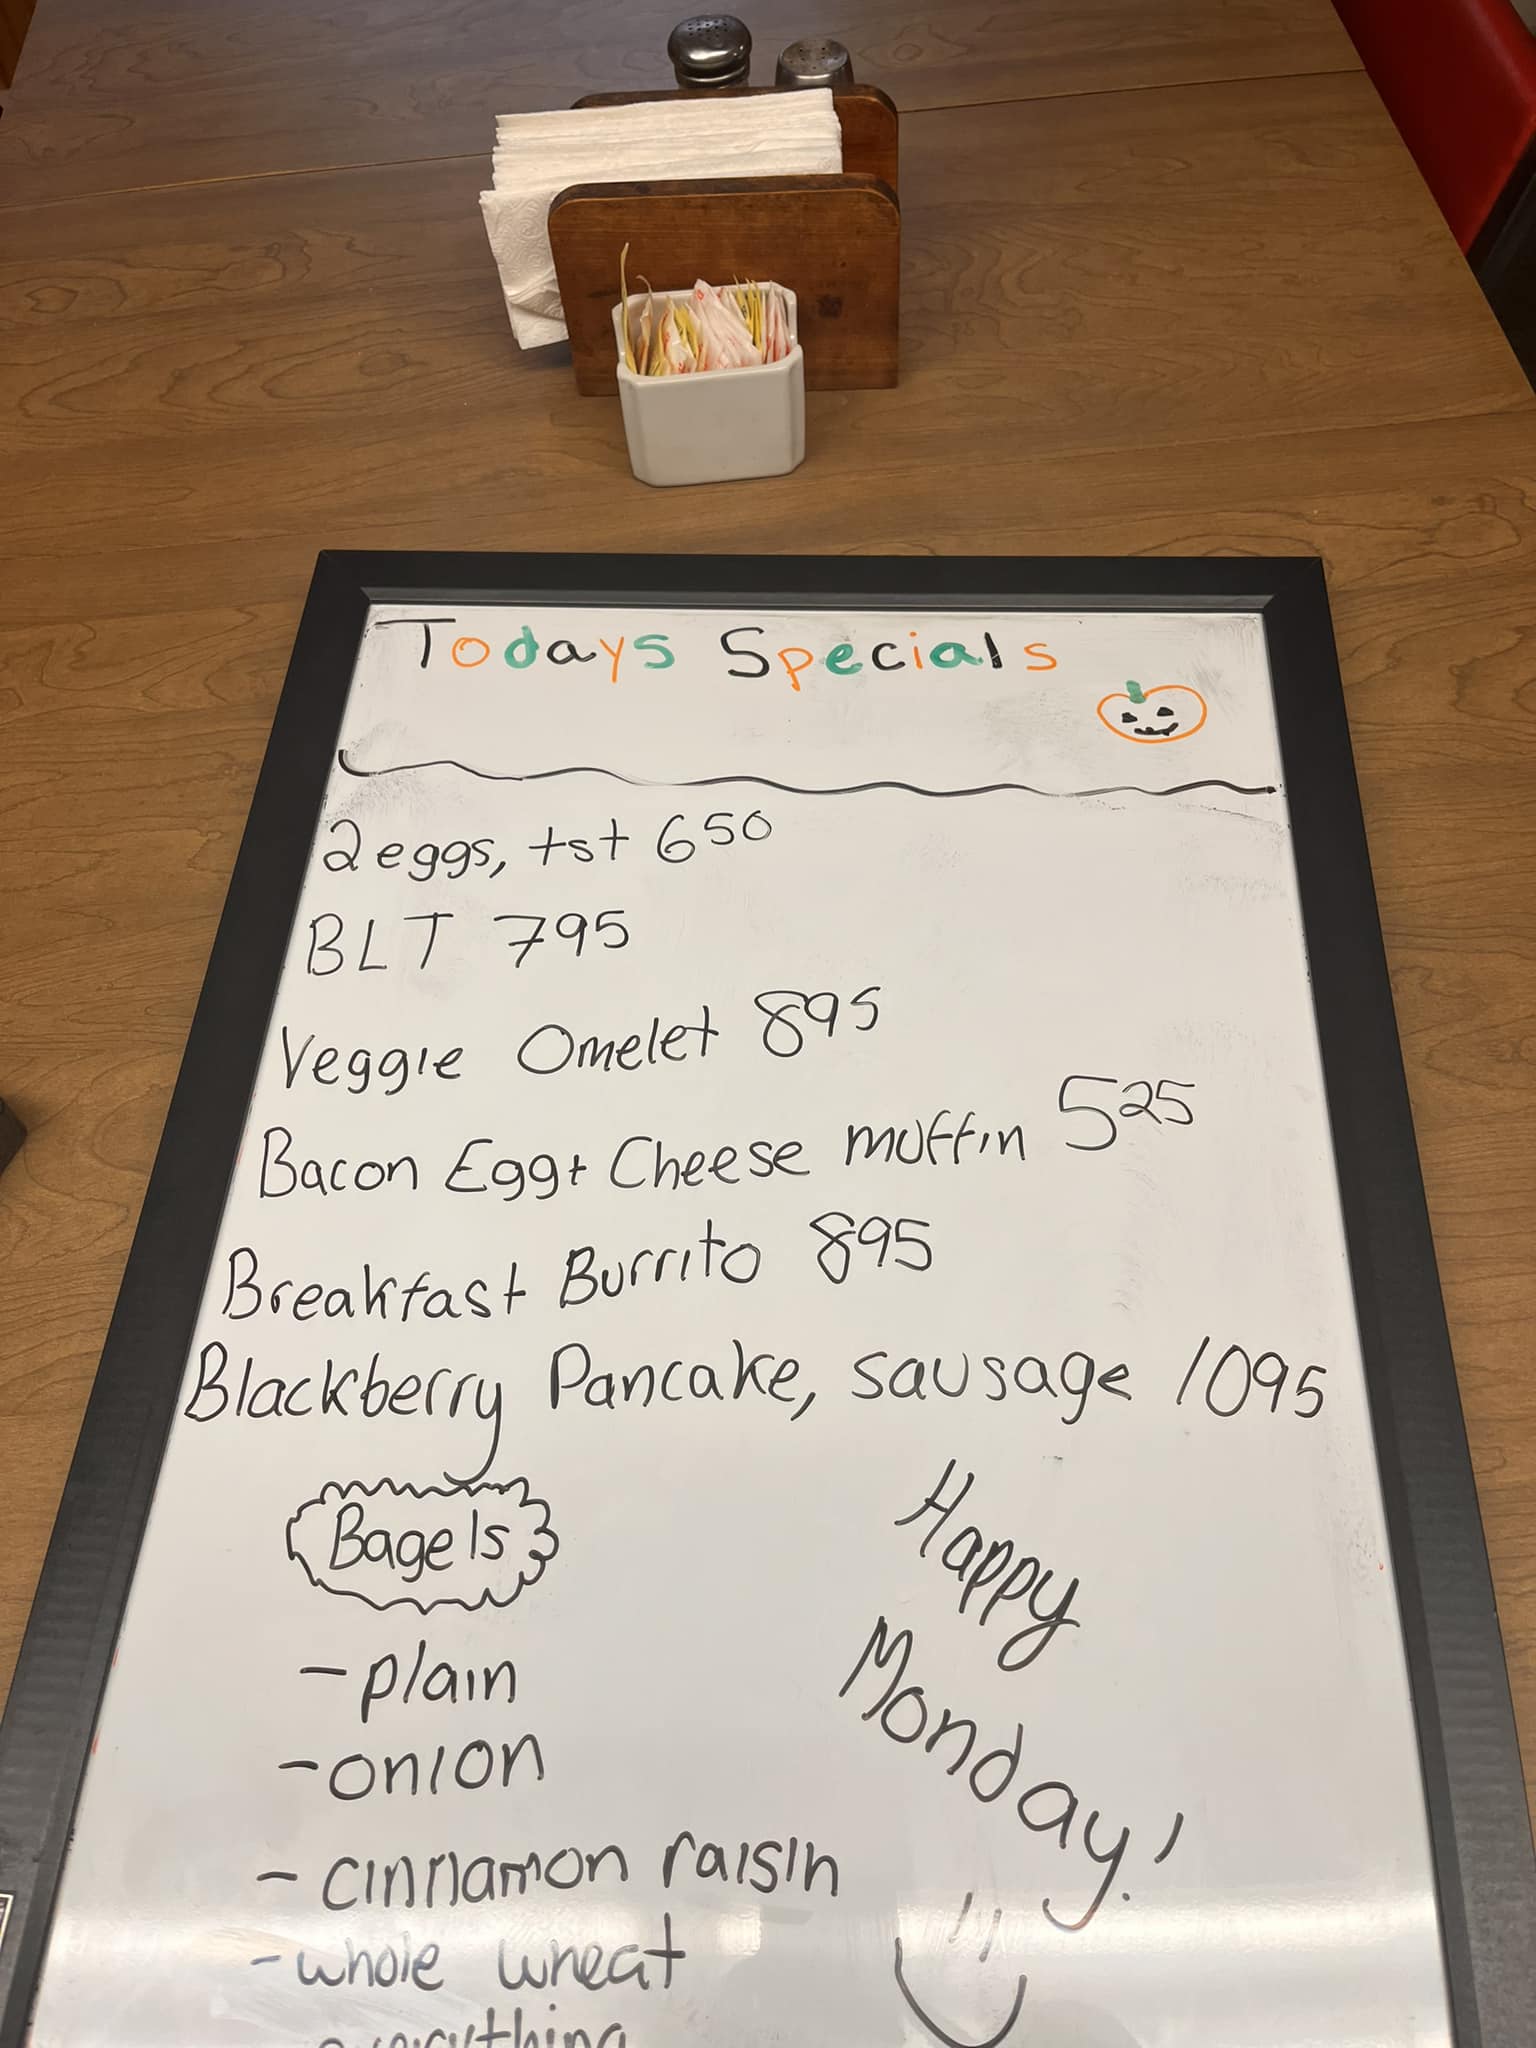 Todays Specials
2 eggs, tst 650
BLT 795
Veggie Omelet 895
Bacon Egg + Cheese muffin 525
Breakfast Burrito 895
Blackberry Pancake, sausage 1095
Bagels
- plain
- onion
- cinnamon raisin
- whole wheat
everything
Happy
Monday!